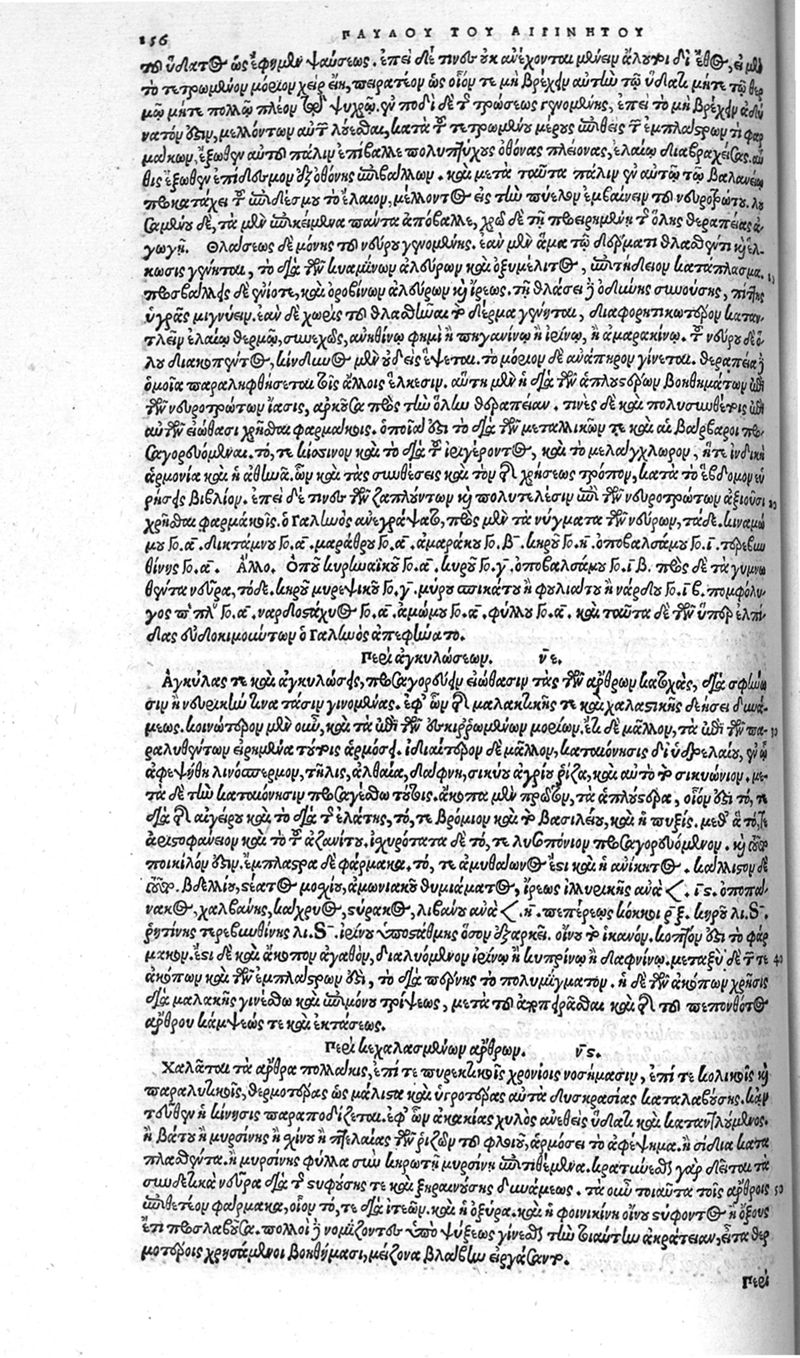 156 ΠΑΥΛΟΥ ΤΟΥ ΑΙΓΙΝΗΤΟΥ
τοῦ ὕδατος ὡς ἔφημεν ψαύσεως. ἐπεὶ δέ τινες οὐκ ἀνέχονται μένειν ἄλουτοι δι' ἔθος, εἰ μὲν
τὸ τετρωμένον μόριον χεὶρ εἴη, πειρατέον ὡς οἷόν τε μὴ βρέχειν αὐτὴν τῷ ὕδατι μήτε τῷ θερ
μῷ μήτε πολλῷ πλέον τῷ ψυχρῷ. ἐν ποδὶ δὲ τῆς τρώσεως γενομένης, ἐπεὶ τὸ μὴ βρέχειν ἀδύ
νατόν ἐστιν, μελλόντων αὐτῶν λούεσθαι, κατὰ τοῦ τετρωμένου μέρους ἐπιθεὶς τῶν ἐμπλάστρων τι φαρ
μάκων, ἔξωθεν αὐτοῦ πάλιν ἐπίβαλλε πολυπτύχους ὀθόνας πλείονας, ἐλαίῳ διαβραχείσας. αὖ
θις ἔξωθεν ἐπίδεσμον ἐξ ὀθόνης ἐπιβάλλων. καὶ μετὰ ταῦτα πάλιν ἐν αὐτῷ τῷ βαλανείῳ
προκατάχει τῷ ἐπιδέσμου τὸ ἔλαιον, μέλλοντος εἰς τὴν πύελον ἐμβαίνειν τοῦ νευροτρώτου. λου
σαμένου δὲ, τὰ μὲν ἐπικείμενα πάντα ἀπόβαλλε, χρῶ δὲ τῇ προειρημένῃ τῆς ὅλης θεραπείας ἀ
γωγῇ. Θλάσεως δὲ μόνης τοῦ νεύρου γενομένης. ἐὰν μὲν ἅμα τῷ δέρματι θλασθέντι καὶ ἕλ
κωσις γένηται, τὸ διὰ τῶν κυαμίνων ἀλεύρων καὶ ὀξυμέλιτος, ἐπιτήδειον κατάπλασμα.
προσβαλεῖς δὲ ἐνίοτε, καὶ ὀροβίνων ἀλεύρων καὶ ἴρεως. τῇ θλάσει δὲ ὀδύνης συνούσης, πίττης
ὑγρᾶς μιγνύειν. ἐὰν δὲ χωρὶς τοῦ θλασθῆναι τὸ δέρμα γένηται, διαφορητικωτέρον καταν
τλεῖν ἐλαίῳ θερμῷ, συνεχῶς, ἀνηθίνῳ φημὶ ἢ πηγανίνῳ ἢ ἰρίνῳ, ἢ ἀμαρακίνῳ. τοῦ νεύρου δὲ ὅ
λου διακοπέντος, κίνδυνος μὲν οὐδεὶς ἕψεται. τὸ μόριον δὲ ἀνάπηρον γίνεται. θεραπεία δὲ
ὁμοία παραληφθήσεται τοῖς ἄλλοις ἕλκεσιν. αὕτη μὲν ἡ διὰ τῶν ἁπλουστέρων βοηθημάτων ἐπὶ
τῶν νευροτρώτων ἴασις, ἀρκοῦσα πρὸς τὴν ὅλην θεραπείαν. τινὲς δὲ καὶ πολυσυνθέτοις ἐπὶ
αὐτῶν εἰώθασι χρῆσθαι φαρμάκοις. ὁποῖά ἐστι τὸ διὰ τῶν μεταλλικῶν τε καὶ αἱ βάρβαροι προσα
γορευόμεναι. τό, τε κιόσινον καὶ τὸ διὰ τοῦ ἠριγέροντος, καὶ τὸ μελάγχλωρον, ἥτε ἰνδικὴ
ἁρμονία καὶ ἡ ἀθηνᾶ. ὧν καὶ τὰς συνθέσεις καὶ τὸν τῆς χρήσεως τρόπον, κατὰ τὸ ἕβδομον εὑ
ρήσεις βιβλίον. ἐπεὶ δέ τινες τῶν ζαπλούντων καὶ πολυτελέσιν ἐπὶ τῶν νευροτρώτων ἀξιοῦσι
χρῆσθαι φαρμάκοις. ὁ Γαληνὸς ἀνεγράψατο, πρὸς μὲν τὰ νύγματα τῶν νεύρων, τάδε. κιναμώ
μου Γο. α. δικτάμνου Γο. α. μαράθρου Γο. α. ἀμαράκου Γο. β. κηροῦ Γο. η. ὀποβαλσάμου Γο. ι. τερεβιν
θίνης Γο. α. Ἄλλο. Ὀποῦ κυρηναϊκοῦ Γο. α. κυροῦ Γο. γ. ὀποβαλσάμου Γο. ι. β. πρὸς δὲ τὰ γυμνω
θέντα νεῦρα, τόδε. κηροῦ μυρεψικοῦ Γο. γ. μύρου σπικάτου ἢ φυλιάτου ἢ νάρδου Γο. ι. β. πομφόλυ
γος Γο. α. ναρδοστάχυος Γο. α. ἀμώμου Γο. α. φύλλου Γο. α. καὶ ταῦτα δὲ τῶν ὑπὲρ ἐλπί
δας εὐδοκιμούντων ὁ Γαληνὸς ἀπεφήνατο.
Περὶ ἀγκυλώσεων. νε.
Ἀγκύλας τε καὶ ἀγκυλώσεις, προσαγορεύειν εἰώθασιν τὰς τῶν ἄρθρων κατοχὰς, διὰ σφήνω
σιν ἢ νευρικήν τινα τάσιν γινομένας. ἐφ' ὧν τῆς μαλακτικῆς τε καὶ χαλαστικῆς δεήσει δυνά
μεως. κοινώτερον μὲν οὖν, καὶ τὰ ἐπὶ τῶν ἐσκιρρωμένων μορίων. ἔτι δὲ μᾶλλον, τὰ ἐπὶ τῶν πα
ραλυθέντων εἰρημένα τούτοις ἁρμόσει. ἰδιαίτερον δὲ μᾶλλον, καταιόνησις δι' ὑδρελαίου, ἐν ᾧ
ἀφεψήθη λινόσπερμον, τῆλις, ἀλθαία, δάφνη, σικύου ἀγρίου ῥίζα, καὶ αὐτὸ τὸ σικυώνιον. με
τὰ δὲ τὴν καταιόνησιν προσαγέσθω τούτοις. ἄκοπα μὲν πρῶτον, τὰ ἁπλούστερα, οἷόν ἐστι τό, τε
διὰ τῆς αἰγείρου καὶ τὸ διὰ τῆς ἐλάτης, τό, τε βρόμιον καὶ τὸ βασιλείου, καὶ ἡ πυξίς. μεθ' ἃ τό, τε
ἀριστοφάνειον καὶ τὸ τοῦ ἀζανίτου. ἰσχυρότατα δὲ τό, τε λυσιπόνιον προσαγορευόμενον. καὶ
ποικίλον ἐστίν. ἔμπλαστρα δὲ φάρμακα. τό, τε ἀμυθάωνος ἐστι καὶ ἡ ἀνίκητος. κάλλιστον δὲ
βδελλίου, στέατος μοσχίου, ἀμωνιακοῦ θυμιάματος, ἴρεως ἰλλυρικῆς ἀνὰ < ις. ὀποπά
νακος, χαλβάνης, καχρυος, στύρακος, λιβάνου ἀνὰ < η. πεπέρεως κόκκοι ρξ. κηροῦ λι. S.
ῥητίνης τερεβινθίνης λι. S. ἰρίνου ὑποστάθμης ὅσον ἐξαρκεῖ. οἴνου τὸ ἱκανόν. κοπτόν ἐστι τὸ φάρ
μακον. ἔστι δὲ καὶ ἄκοπον ἀγαθὸν, διαλυόμενον ἰρίνῳ ἢ κυπρίνῳ ἢ δαφνίνῳ. μεταξὺ δὲ τῶν τε 40
ἀκόπων καὶ τῶν ἐμπλάστρων ἐστι, τὸ διὰ πτέρνης τὸ πολυμίγματον. ἡ δὲ τῶν ἀκόπων χρῆσις
διὰ μαλακῆς γινέσθω καὶ ἐπιμόνου τρίψεως, μετὰ τοῦ ἀποπειρᾶσθαι καὶ τῆς τοῦ πεπονθότος
ἄρθρου κάμψεώς τε καὶ ἐκτάσεως.
Περὶ κεχαλασμένων ἄρθρων. νς.
Χαλᾶται τὰ ἄρθρα πολλάκις, ἐπί τε πυρεκτικοῖς χρονίοις νοσήμασιν, ἐπί τε κολικοῖς καὶ
παραλυτικοῖς, θερμοτέρας ὡς μάλιστα καὶ ὑγροτέρας αὐτὰ δυσκρασίας καταλαβούσης. κἀν
τεῦθεν ἡ κίνησις παραποδίζεται. ἐφ' ὧν ἀκακίας χυλὸς ἀνεθεὶς ὕδατι καὶ καταντλούμενος.
ἢ βάτου ἢ μυρσίνης ἢ σχίνου ἢ πτελέας τῶν ῥιζῶν τοῦ φλοιοῦ, ἁρμόσει τὸ ἀφέψημα. ἢ σίδια κατα
πλασθέντα. ἢ μυρσίνης φύλλα σὺν κηρωτῇ μυρσίνῃ ἐπιτιθέμενα. κρατυνεῖσθαι γὰρ δεῖται τὰ
συνδετικὰ νεῦρα διὰ τῆς στυφούσης τε καὶ ξηραινούσης δυνάμεως. τὰ οὖν τοιαῦτα τοῖς ἄρθροις 50
ἐπιθετέον φάρμακα, οἷον τό, τε διὰ ἰτεῶν. καὶ ἡ ὀξυρὰ. καὶ ἡ φοινικίνη οἴνου στύφοντος ἢ ὄξους
ἔτι προσλαβοῦσα. πολλοὶ δὲ νομίζοντες ὑπὸ ψύξεως γίνεσθαι τὴν τοιαύτην ἀκράτειαν, εἶτα θερ
μοτέροις χρησάμενοι βοηθήμασι, μείζονα βλάβην εἰργάσαντο.
Περὶ